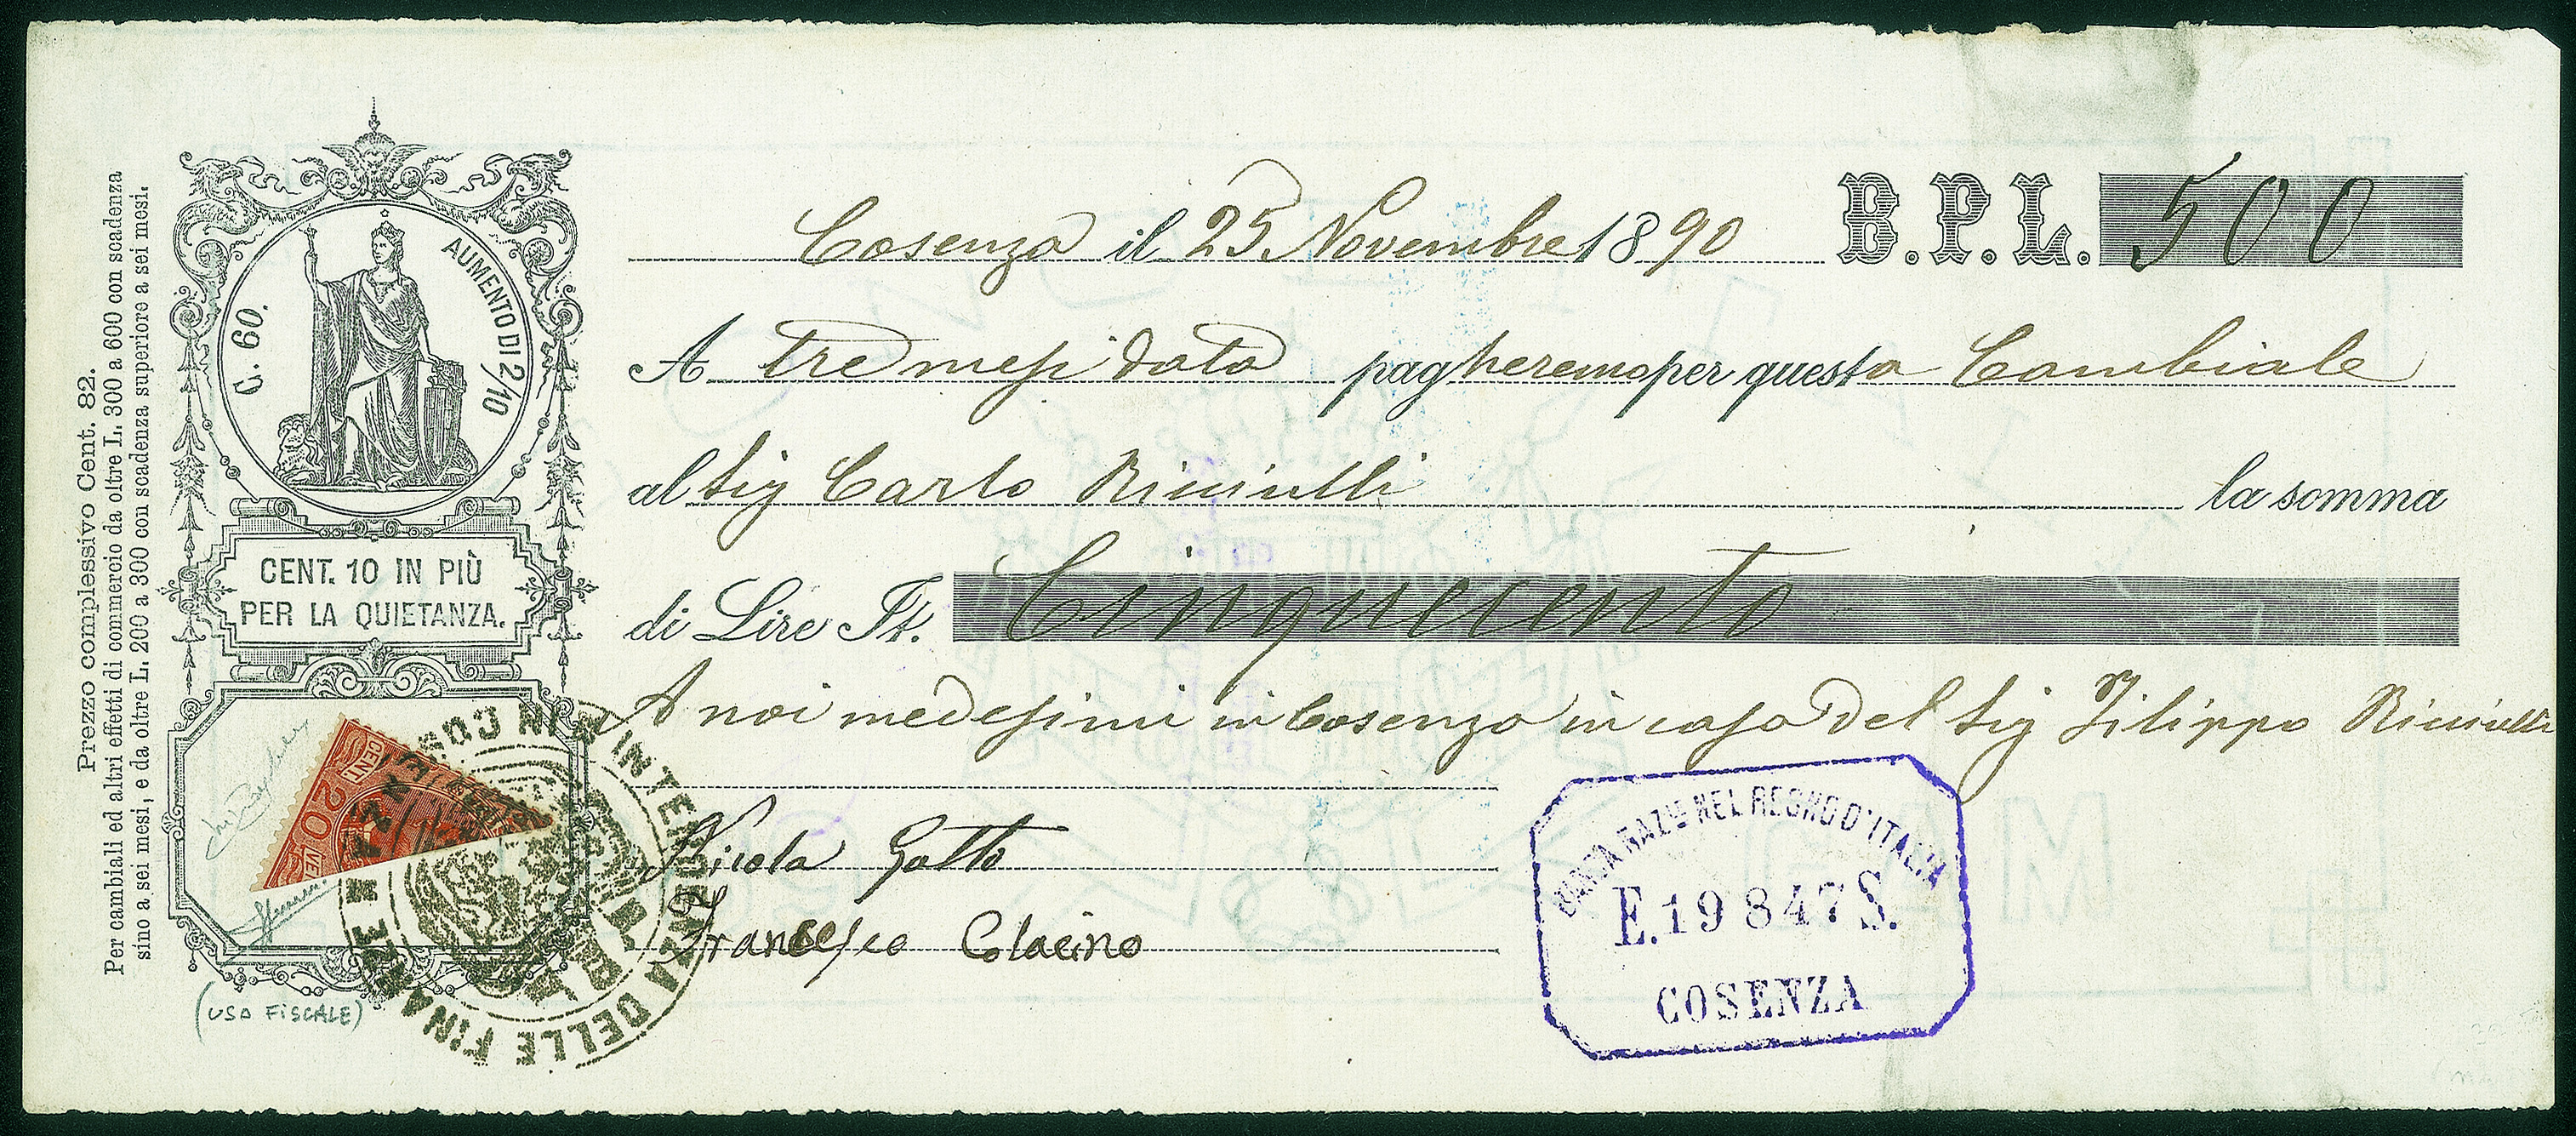 Prezzo complessivo Cent. 82.
Per cambiali ed altri effetti di commercio da oltre L. 300 a 600 con scadenza
sino a sei mesi, e da oltre L. 200 a 300 con scadenza superiore a sei mesi.
C. 60.
AUMENTO DI 2/10
CENT. 10 IN PIÙ
PER LA QUIETANZA.
CENT. 20 VE
INTENDENZA DELLE FINANZE IN COSENZA
(USO FISCALE)
Cosenza il 25 Novembre 1890 B.P.L. 500
A tre mesi data pagheremo per questa Cambiale
al Sig Carlo Ricciulli la somma
di Lire It. Cinquecento
A noi medesimi in Cosenza in casa del Sig Filippo Ricciulli
Nicola Gatto
Francesco Colacino
BANCA NAZLE NEL REGNO D'ITALIA
E. 19847 S.
COSENZA